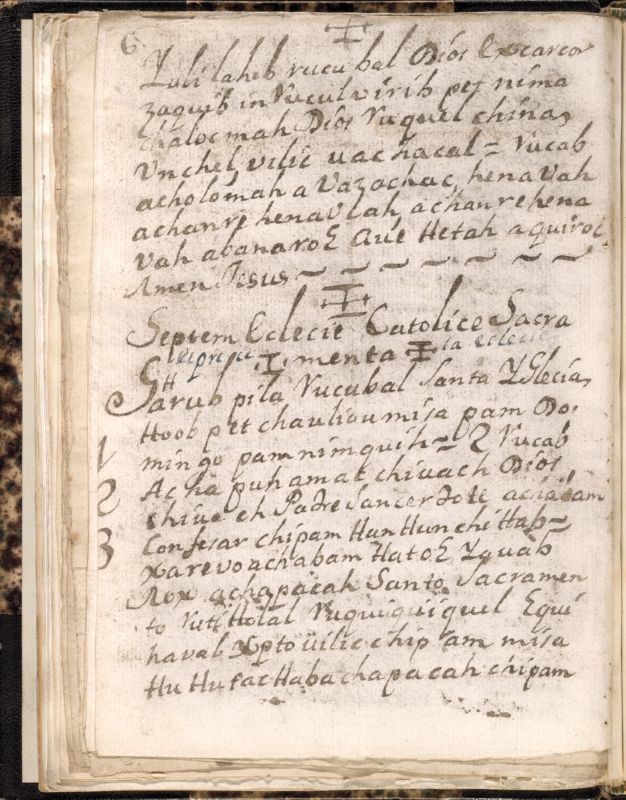 6
Laheb rucubal Dios
zaquib in Rucul virib pet nima
chaloc mah Dios Ruquel chinas
Vnchel vilic uachacal = Rucab
acholomah a Vazachac, hena Vah
achanre hena Vlah, achanre hena
Vah abanaroz aue Hetah a quiroz
Amen Jesus
Septem Eclecie Catolice Sacra
menta
ta eclecie
Harub pila Rucubal Santa Yglecia,
Hoob pet chaulic u misa pam Do,
1 mingo pam nimquih = 2 Rucab
Acha puh amac chiuach Dios,
2 chiuach Padre Sancerdote achabam
Confesar chipam Hun Hun chi Hab =
3 xare vo achabam Hatoz Yquab
Rox achapacah Santo Sacramen
to Ruti Holal Ruquiquiquel Equi
haval Xpto uilic chipam misa
Hu Hu Haba chapacah chipam